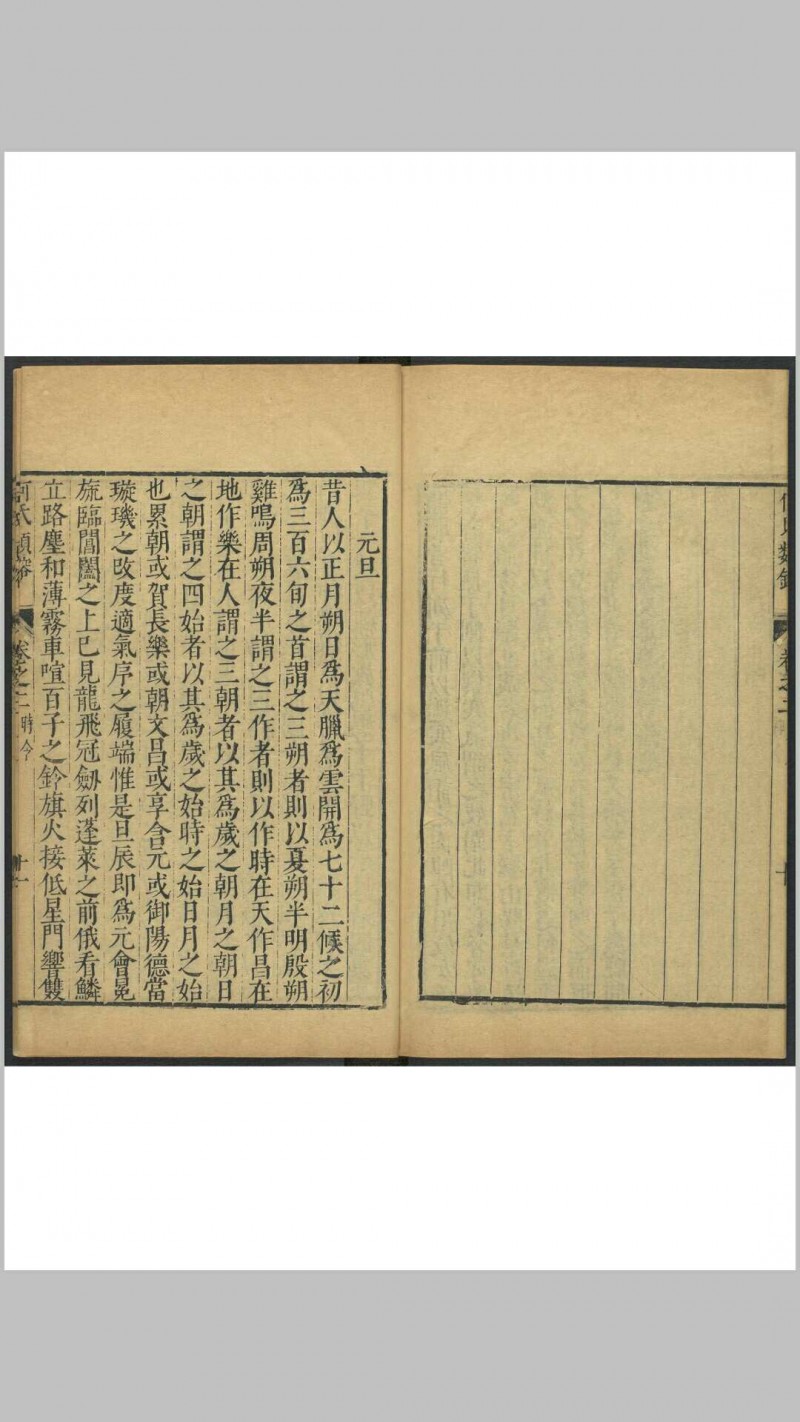 卷之二
元旦
昔人以正月朔日為天臘為雲開為七十二候之初
為三百六旬之首謂之三朔者則以夏朔半明殷朔
雞鳴周朔夜半謂之三作者則以作時在天作昌在
地作樂在人謂之三朝者以其為歲之朝月之朝日
之朝謂之四始者以其為歲之始時之始日月之始
也累朝或賀長樂或朝文昌或享含元或御陽德當
璇璣之改度適氣序之履端惟是旦辰即為元會冕
旒臨閶闔之上已見龍飛冠劒列蓬萊之前俄看鱗
立路塵和薄霧車喧百子之鈴旗火接低星門響雙
卷之二 時令 十一